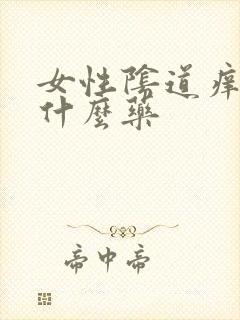 女性陰道痒
什麼藥
帝中帝